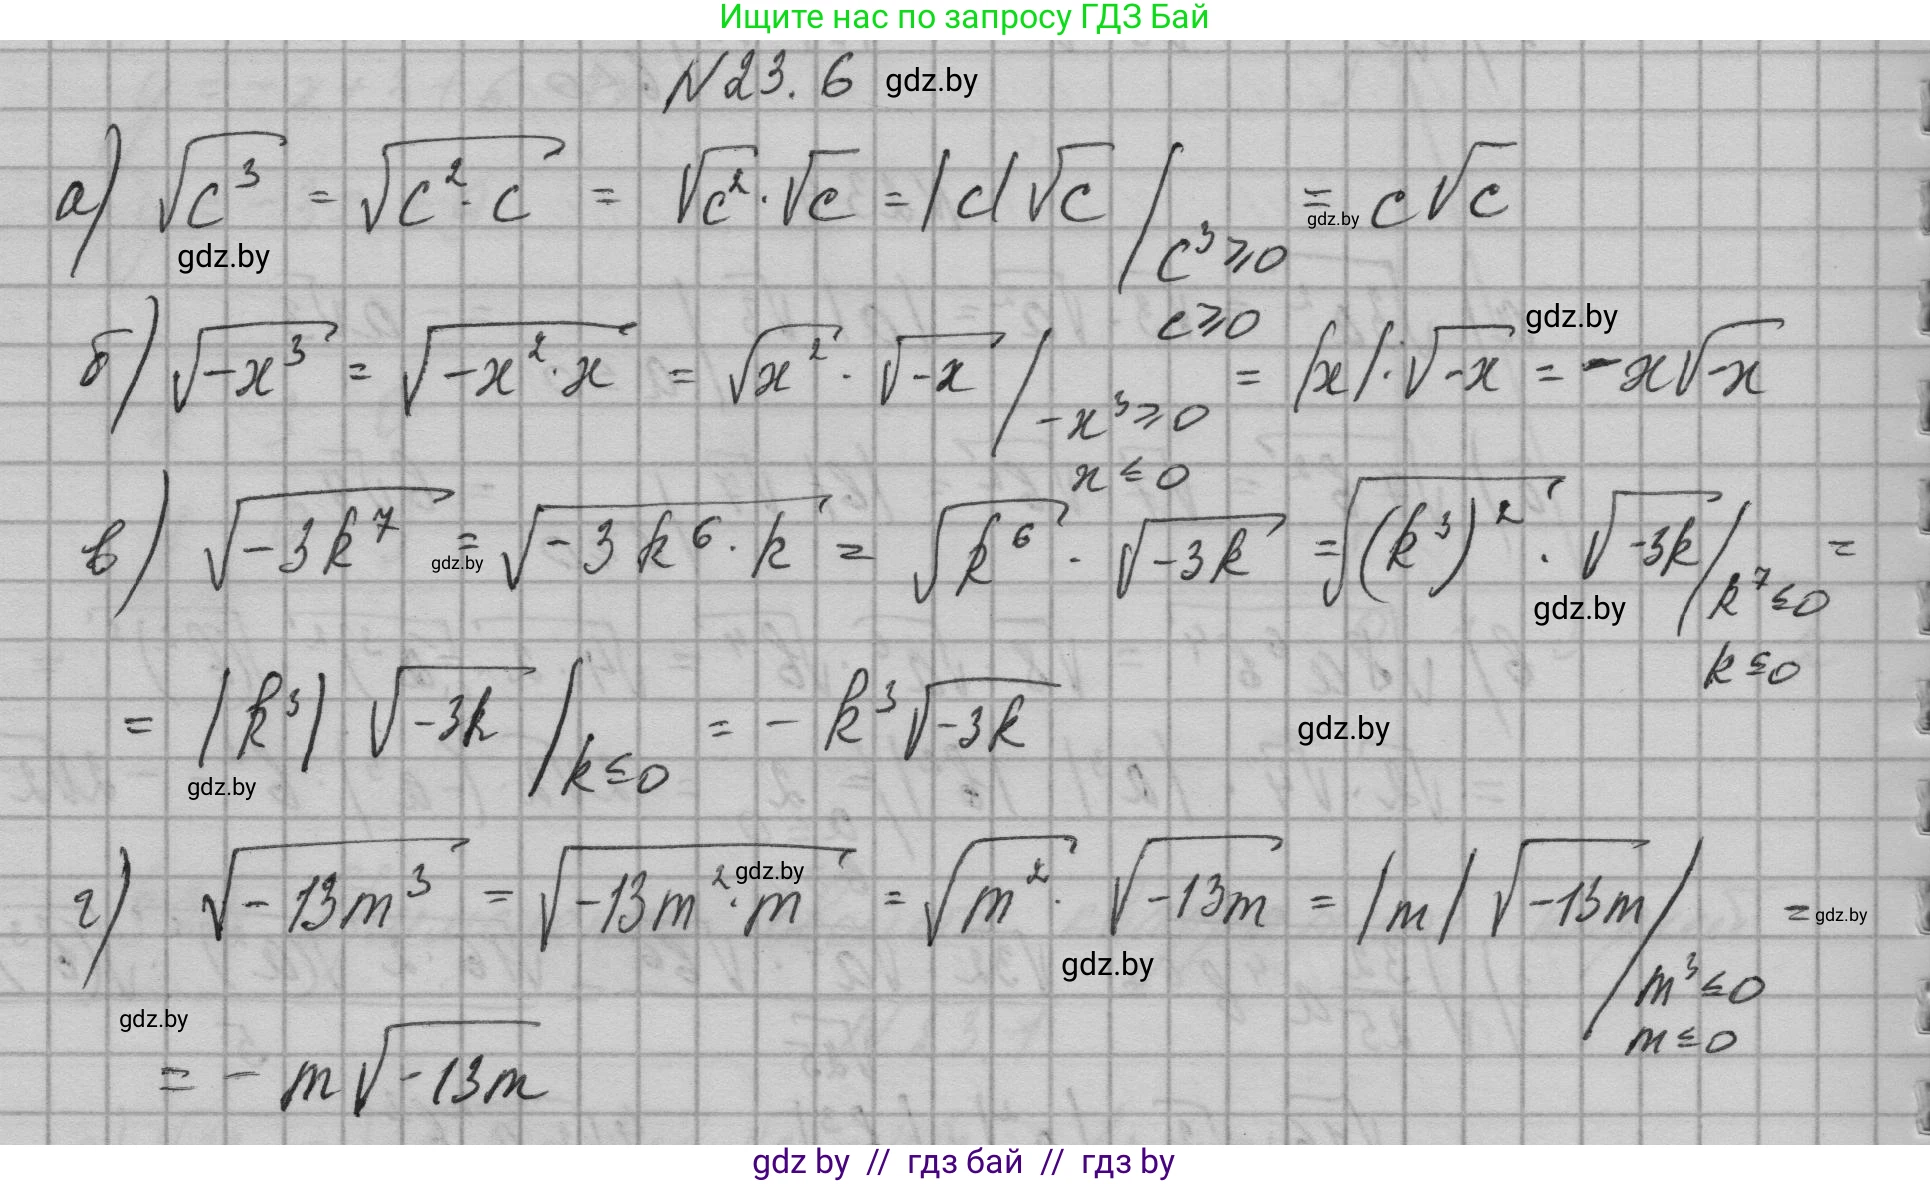 Ищите нас по запросу ГДЗ Бай
N23.6 gdz.by
а) √(c³) = √(c²·c) = √(c²)·√c = |c|√c / c³⩾0 = c√c
gdz.by gdz.by
c⩾0 gdz.by
б) √(-x³) = √(-x²·x) = √(x²)·√(-x) / -x³⩾0 = |x|·√(-x) = -x√(-x)
x≤0
в) √(-3k⁷) = √(-3k⁶·k) = √(k⁶)·√(-3k) = √((k³)²)·√(-3k) / k⁷≤0 =
gdz.by gdz.by
k≤0
= |k³| √(-3k) / k≤0 = -k³√(-3k) gdz.by
gdz.by
г) √(-13m³) = √(-13m²·m) = √(m²)·√(-13m) = |m|√(-13m) / m³≤0 =
gdz.by gdz.by gdz.by
m≤0
gdz.by
= -m√(-13m)
gdz by // гдз бай // гдз by